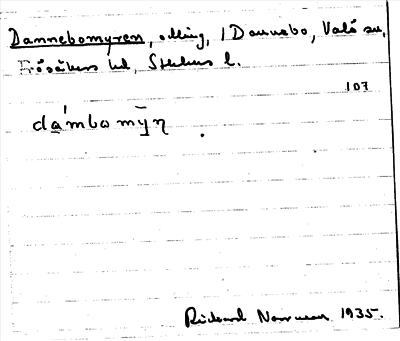 Dannebomyren, odling, i Dannebo, Valö sn,
Frösåkers hd, Sthlms l.
107
dámbomȳn
Rickard Norrman 1935.